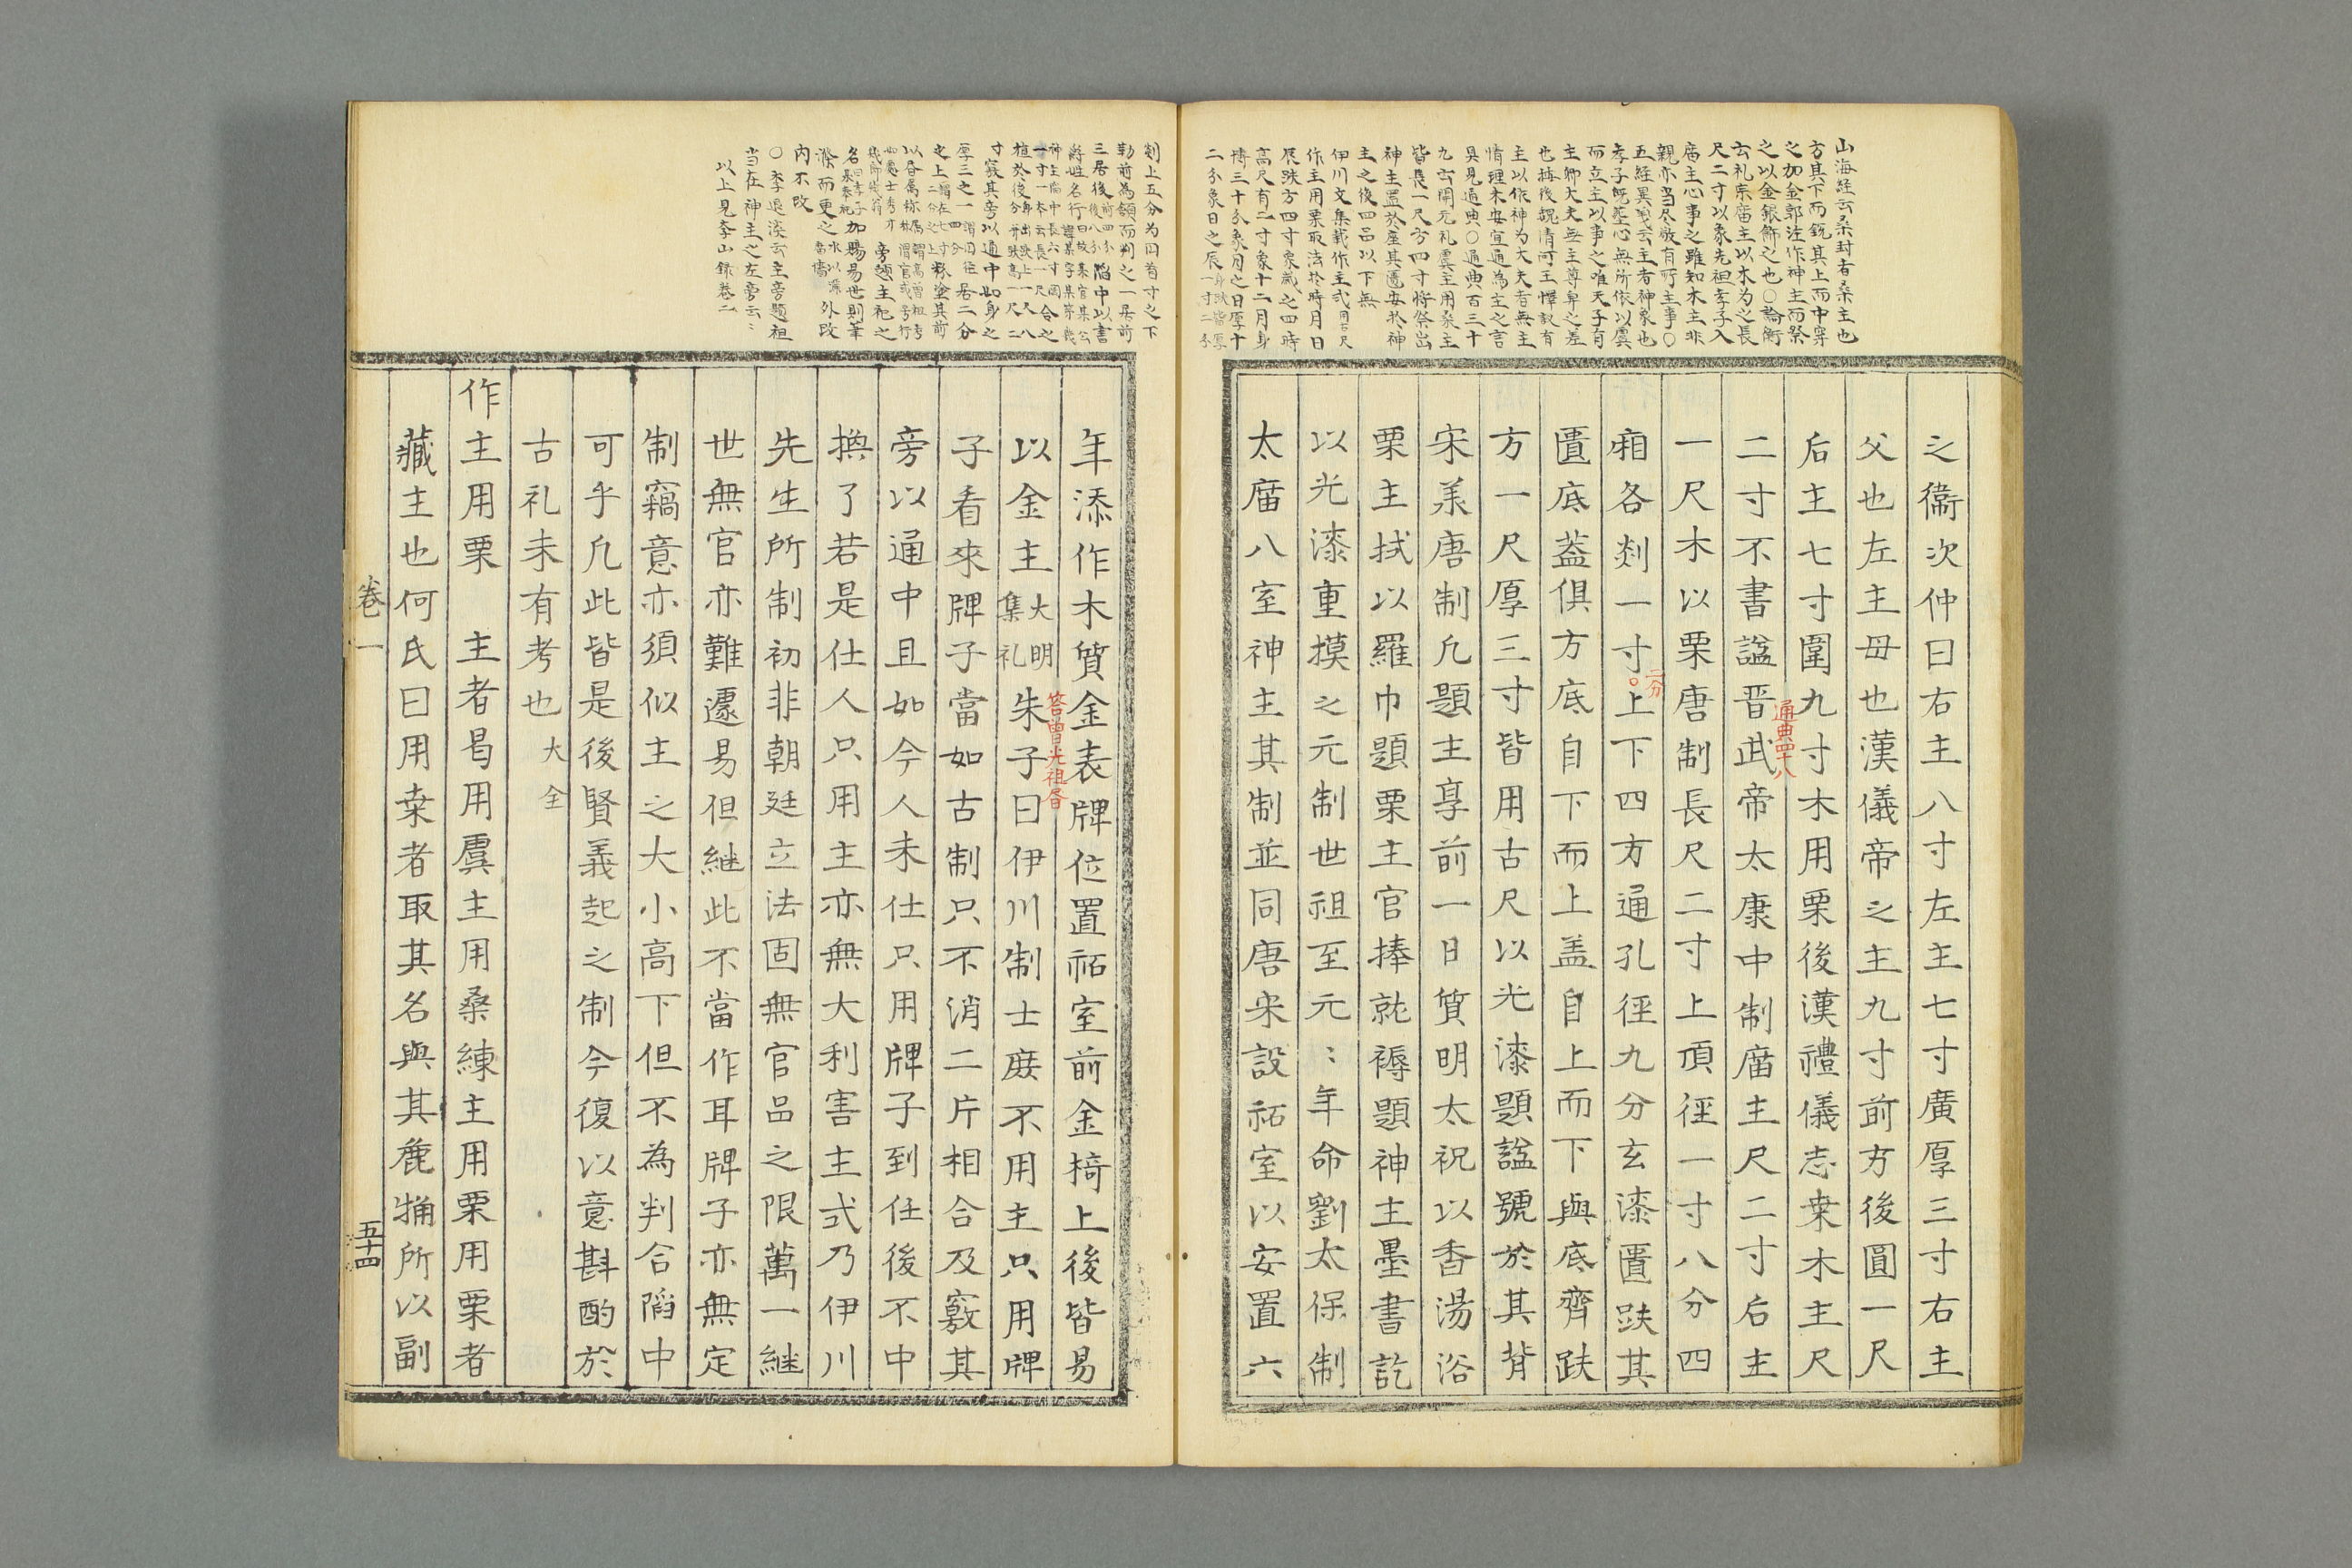 山海経云桑封者桑主也
方其下而銳其上而中穿
之加金郭注作神主而祭
之以金銀飾之也○論衡
云礼宗庿主以木为之長
尺二寸以象先祖孝子入
庿主心事之雖知木主非
親亦当尽敬有所主事○
五経異義云主者神象也
孝子既葬心無所依以虞
而立主以事之唯天子有
主卿大夫無主尊卑之差
也
主以依神为大夫者無主
情理未安宜通為主之言
具見通典○通典百三十
九云開元礼虞主用桑主
皆長一尺方四寸將祭出
神主置於座其匱安於神
主之後四品以下無
伊川文集載作主式用古尺
作主用栗取法於時月日
辰趺方四寸象歲之四時
高尺有二寸象十二月身
博三十分象月之日厚十
二分象日之辰身趺皆厚一寸二分
之衞次仲曰右主八寸左主七寸廣厚三寸右主
父也左主母也漢儀帝之主九寸前方後圓一尺
后主七寸圍九寸木用栗後漢禮儀志桒木主尺
通典四十八
二寸不書謚晋武帝太康中制庿主尺二寸后主
一尺木以栗唐制長尺二寸上頂徑一寸八分四
廂各剡一寸上下四方通孔徑九分玄漆匱趺其
二分
匱底蓋俱方底自下而上盖自上而下與底齊趺
方一尺厚三寸皆用古尺以光漆題謚號於其背
宋羕唐制凡題主享前一日質明太祝以香湯浴
栗主拭以羅巾題栗主官捧就褥題神主墨書訖
以光漆重摸之元制世祖至元〻年命劉太保制
太庿八室神主其制並同唐宋設祏室以安置六
剡上五分为囙首寸之下
勒前為頷而判之一居前
三居後前四分後八分陷中以書
爵姓名行曰故某官某公諱某字某第幾
神主陷中長六寸闊
一寸一本云長一尺合之
植於後身出趺上一尺八分并趺高一尺二
寸竅其旁以通中如身之
厚三之一謂圓径四分居二分
之上謂在七寸二分之上粉塗其前
以昏属称属謂高曽祖考称謂官或号行
如處士秀才幾郎幾翁旁題主祀之
名曰孝子某奉祀加贈易世則筆
滌而更之水以洒庿墻外改
内不改
○李退溪云主旁題祖
当在神主之左旁云〻
以上見李山録卷二
年添作木質金表牌位置祏室前金椅上後皆易
以金主大明集礼朱子曰伊川制士庶不用主只用牌
答曽光祖昏
子看來牌子當如古制只不消二片相合及竅其
旁以通中且如今人未仕只用牌子到任後不中
換了若是仕人只用主亦無大利害主式乃伊川
先生所制初非朝廷立法固無官品之限萬一継
世無官亦難遽易但継此不當作耳牌子亦無定
制竊意亦須似主之大小高下但不為判合陷中
可乎凡此皆是後賢義起之制今復以意斟酌於
古礼未有考也大全
作主用栗　主者曷用虞主用桑練主用栗用栗者
藏主也何氏曰用桒者取其名與其麁觕所以副
卷一
五十四